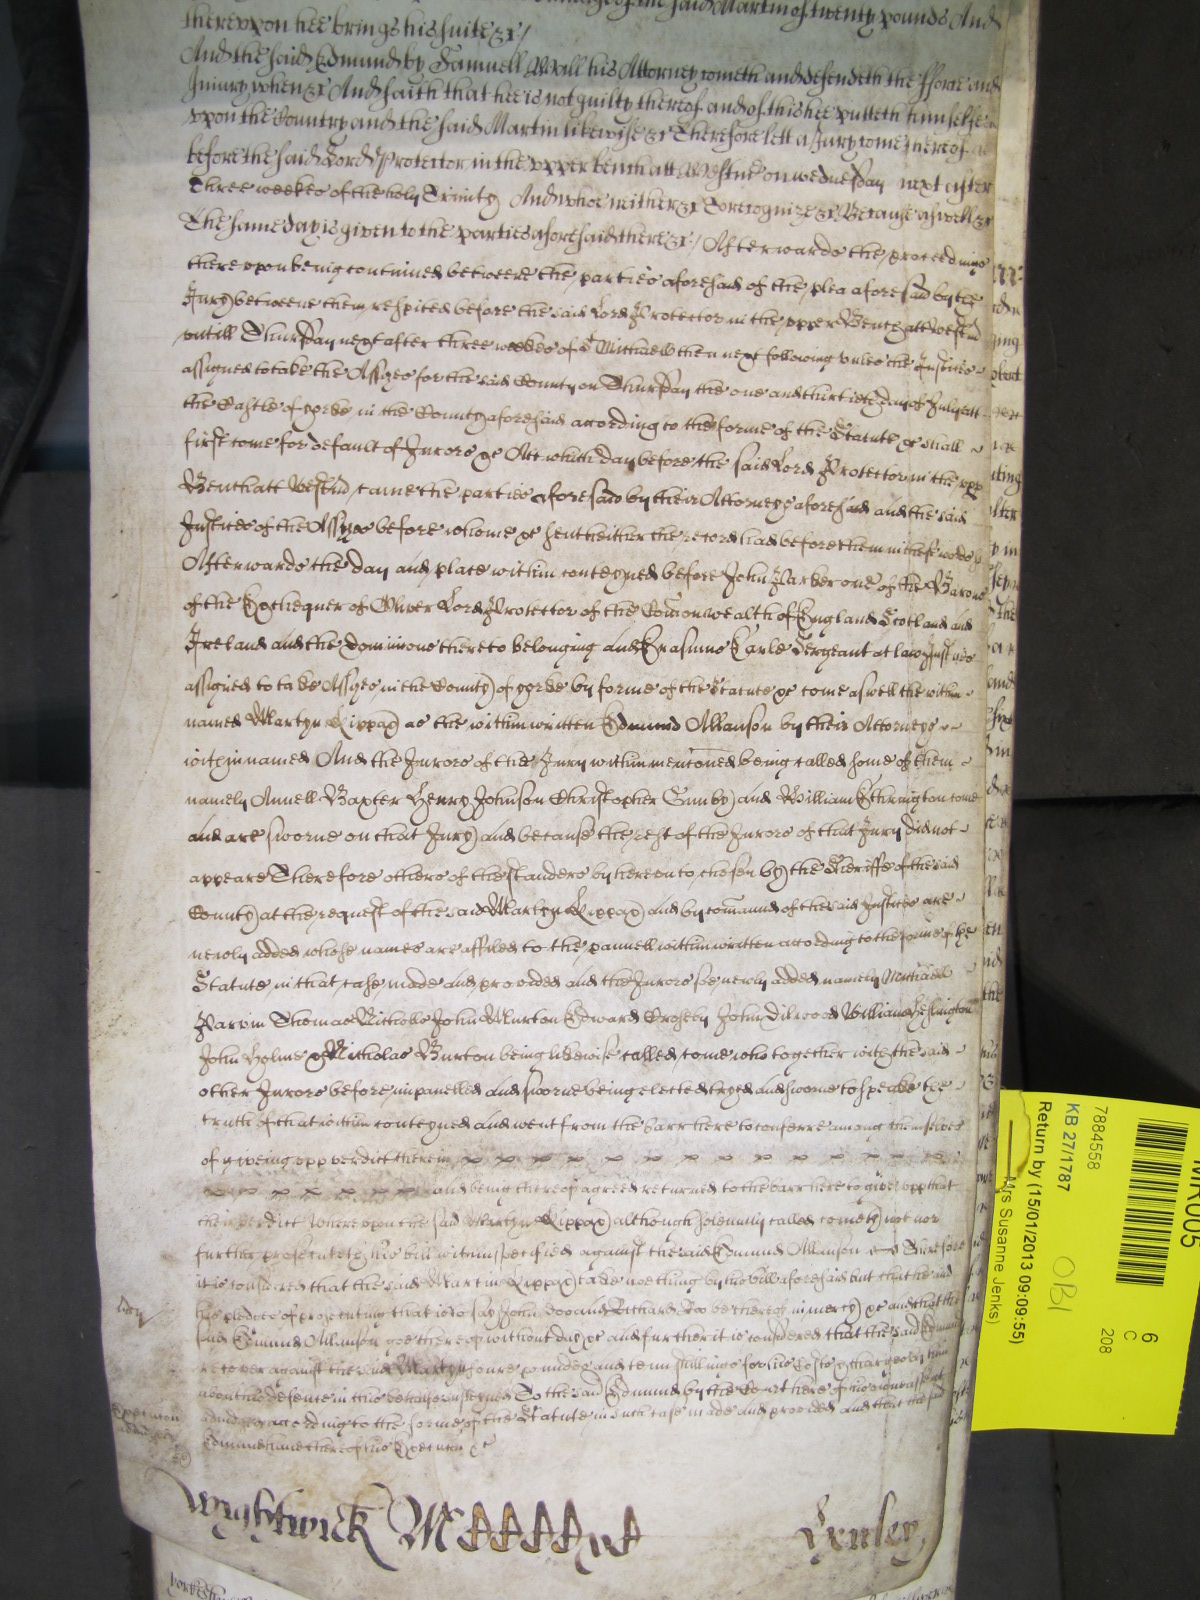 the said Martin of twenty pounds And
therevpon hee brings his suite &c /
And the said Edmund by Samuell Wall his Attorney cometh and defendeth the fforce and
Iniury when &c And saith that hee is not guilty thereof and of this hee putteth himselfe
vpon the Country and the said Martin likewise &c Therefore lett a Jury come thereof
before the said Lord Protector in the vpper bench att Westmr on wednesday next after
Three weekes of the holy Trinity And who neither &c To recognize &c Because aswell &c
The same day is given to the parties aforesaid there &c / Afterwards the proceedings
therevpon being continued betweene the parties aforesaid of the plea aforesaid by the
Jury betweene them respited before the said Lord Protector in the vpper Bench att Westm
vntill Thursday next after three weekes of St Michaell then next following vnles the Justices
assigned to take the Assizes for the said County on Thursday the one and thirtieth day of July att
the Castle of yorke in the County aforesaid according to the forme of the Statute &c shall
first come for default of Jurors &c Att which day before the said Lord Protector in the vpp
Bench att Westm came the parties aforesaid by their Attorneys aforesaid and the said
Justices of the Assizes before whome &c sent hither the record had before them in these words
Afterwards the day and place within conteyned before John Parker one of the Barons
of the Exchequer of Oliver Lord Protector of the Comonwealth of England Scotland and
Ireland and the dominions thereto belonging and Erasmus Earle Sergeant at law Justices
assigned to take Assizes in the County of yorke by forme of the Statute &c come aswell the within
named Martyn Lippax as the within written Edmund Allanson by their Attorneys
within named And the Jurors of the Jury within mentioned being called some of them
namely Annell Baxter Henry Johnson Christopher Gunby and William Etherington come
and are sworne on that Jury and because the rest of the Jurors of that Jury did not
appeare Therefore others of the standers by hereonto chosen by the Sheriffe of the said
County at the request of the said Martyn Lippax and by comaund of the said Justices are
newly added whose names are affiled to the pannell within written according to the forme of the
Statute in that case made and provided and the Jurors soe newly added namely Michaell
Parvin Thomas Nicholls John Murton Edward Crosby John Dilwood William Heslington
John Holme & Nicholas Burton being likewise called come who together with the said
other Jurors before impanelled and sworne being elected tryed and sworne to speake the
truth of that within conteyned and went from the barr here to conferre among themselves
of giveing vpp verdict therein
and being thereof agreed returned to the barr here to give vpp that
their verdict Wherevpon the said Martyn Lippax although solemnly called cometh not nor
further prosecuteth his bill within specified against the said Edmund Allanson Therefore
it is considered that the said Martin Lippax take nothing by his bill aforesaid but that he and
his pledges of prosecuting that is to say John Doo and Richard Roo be thereof in mercy &c and that the
said Edmund Allanson goe thereof without day &c and further it is considered that the said Edmund
recover against the said Martyn foure pounds and tenn shillings for his Costs & charges by him
about his defence in this behalfe susteyned To the said Edmund by the Court here of his owne assent
adiudged according to the forme of the Statute in such case made and provided and that the said
Edmund have thereof his Execucon &c
mercy
Execucon
Wightwick
Lynsey
MR005
7884558
KB 27/1787
Return by (15/01/2013 09:09:55)
Mrs Susanne Jenks)
OB1
6
C
208